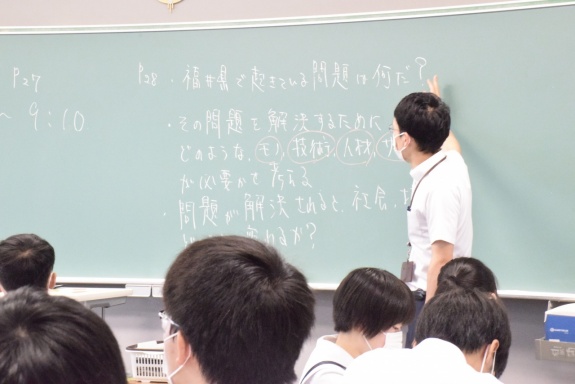 P27
～9:10
P28・福井県で起きている問題は何だ?
・その問題を解決するために
どのような、モノ、技術、人材、サ
が必要かを考える
・問題が解決されると、社会、
わるか?